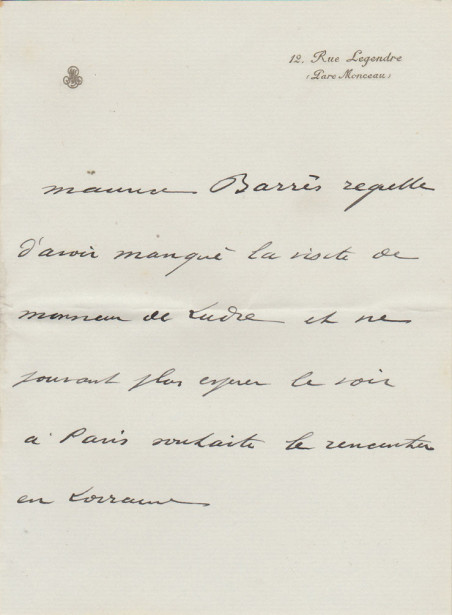 12, Rue Legendre
(Parc Monceau)
Maurice Barrès regrette
d'avoir manqué la visite de
Monsieur de Ludre et ne
pouvant plus espérer le voir
à Paris souhaite le rencontrer
en Lorraine